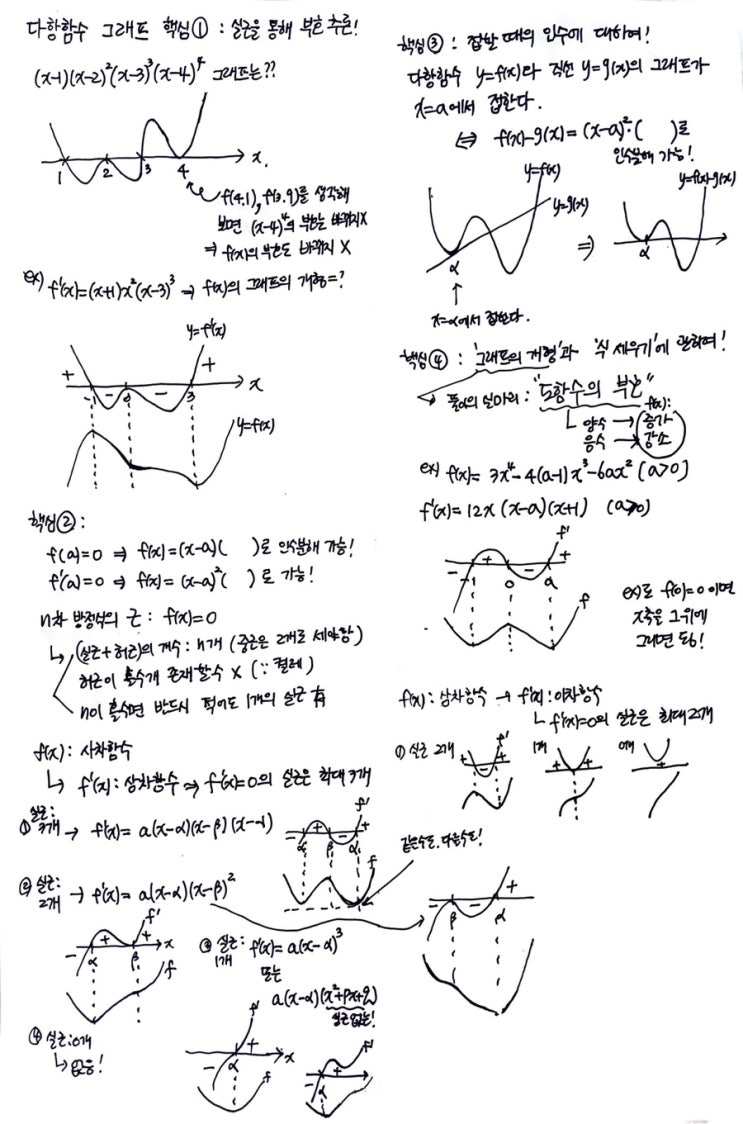 다항함수 그래프 핵심① : 실근을 통해 부호 추론!
(x-1)(x-2)²(x-3)³(x-4)⁴ 그래프는??
1 2 3 4 x
f(4.1), f(3.9)를 생각해
보면 (x-4)⁴의 부호는 바뀌지X
⇒ f(x)의 부호도 바뀌지 X
ex) f'(x)=(x+1)x²(x-3)³ → f(x)의 그래프의 개형=?
y=f'(x)
+ - - + x
-1 0 3
y=f(x)
핵심②:
f(a)=0 ⇒ f(x)=(x-a)( )로 인수분해 가능!
f'(a)=0 ⇒ f(x)= (x-a)²( )로 가능!
n차 방정식의 근 : f(x)=0
↳ (실근+허근)의 개수 : n개 (중근은 2개로 세야함)
허근이 홀수개 존재할수 X (∵ 켤레)
n이 홀수면 반드시 적어도 1개의 실근 有
f(x): 사차함수
↳ f'(x): 삼차함수 ⇒ f'(x)=0의 실근은 최대 3개
① 실근: 3개 → f'(x)= a(x-α)(x-β)(x-γ)
f'
- + - +
f
같은수도. 다를수도!
② 실근: 2개 → f'(x)= a(x-α)(x-β)²
f'
- + + x
α β
f
- - +
β α
③ 실근: 1개 f'(x)= a(x-α)³
또는
a(x-α)(x²+px+q)
실근없는!
f'
- + x
α
f
f'
- +
α
④ 실근:0개
↳ 없음!
핵심③ : 접할 때의 인수에 대하여!
다항함수 y=f(x)와 직선 y=g(x)의 그래프가
x=a에서 접한다.
⇔ f(x)-g(x)= (x-a)²·( )로
인수분해 가능!
y=f(x)
y=g(x)
α
⇒
y=f(x)-g(x)
α
x=α에서 접한다.
핵심④ : '그래프의 개형'과 '식 세우기'에 관하여!
풀이의 실마리 : "도함수의 부호"
f(x):
양수 → 증가
음수 → 감소
ex) f(x)= 3x⁴-4(a-1)x³-6ax² (a>0)
f'(x)= 12x (x-a)(x+1) (a>0)
f'
- + - +
-1 0 a
f
ex)로 f(0)=0 이면
x축을 그 위에
그리면 되!
f(x): 삼차함수 → f'(x): 이차함수
↳ f'(x)=0의 실근은 최대 2개
① 실근 2개
f'
+ - +
1개
+ +
0개
+